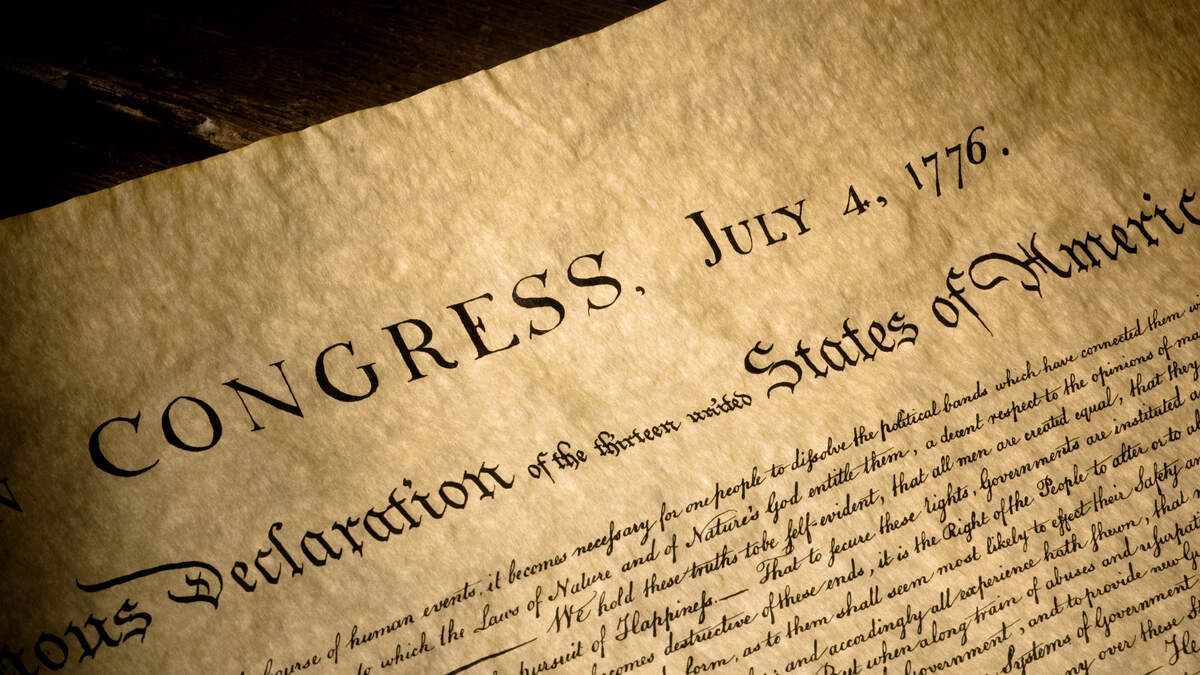 N CONGRESS, JULY 4, 1776.
mous Declaration of the thirteen united States of Americ
course of human events, it becomes neceſsary for one people to diſsolve the political bands which have connected them w
to which the Laws of Nature and of Nature's God entitle them, a decent respect to the opinions of ma
— We hold these truths to be ſelf-evident, that all men are created equal, that they
pursuit of Happineſs.— That to ſecure these rights, Governments are instituted a
comes destructive of these ends, it is the Right of the People to alter or to ab
form, as to them shall seem most likely to effect their Safety an
; and accordingly all experience hath ſhewn, that
But when a long train of abuses and uſurpati
overnment, and to provide new G
Systems of Government
ny over these S
He